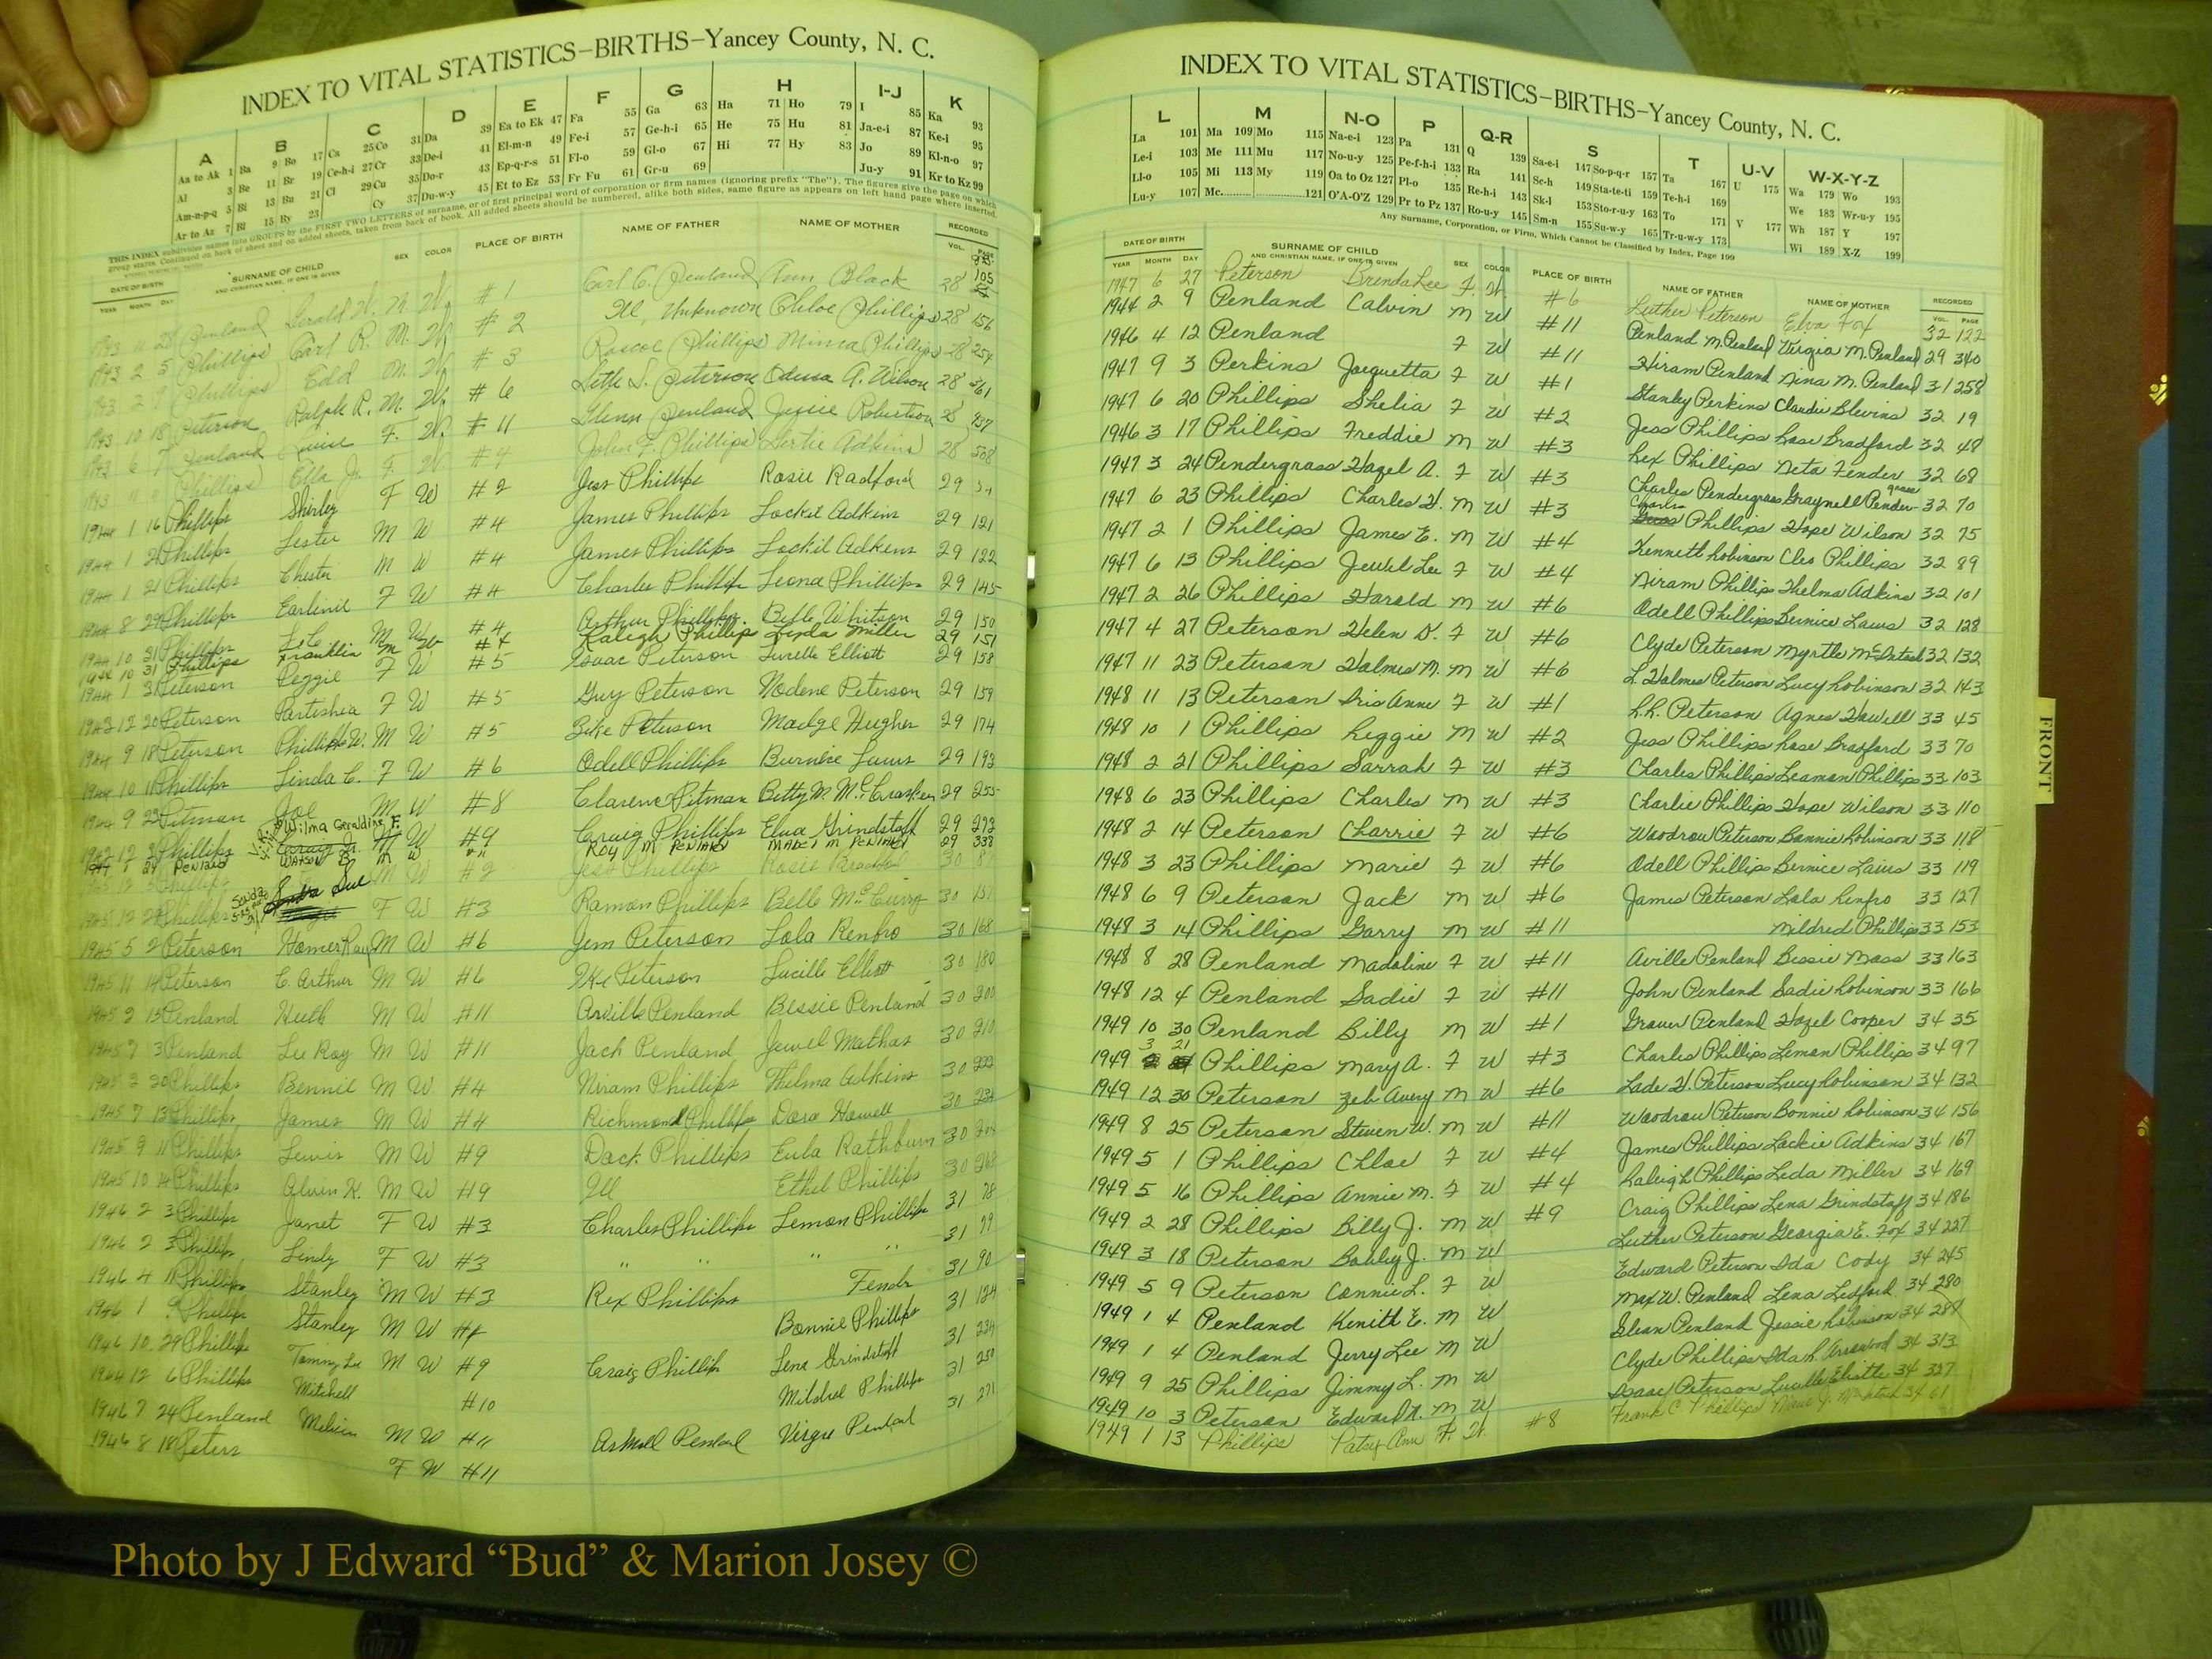 INDEX TO VITAL STATISTICS—BIRTHS—Yancey County, N. C.
A B C D E F G H I-J K
Aa to Ak 1 Ba 9 Bo 17 Ca 25 Co 31 Da 39 Ea to Ek 47 Fa 55 Ga 63 Ha 71 Ho 79 I 85 Ka 93
Al 3 Be 11 Br 19 Ce-h-i 27 Cr 33 De-i 41 El-m-n 49 Fe-i 57 Ge-h-i 65 He 75 Hu 81 Ja-e-i 87 Ke-i
Am-n-p-q 5 Bi 13 Bu 21 Cl 29 Cu 35 Do-r 43 Ep-q-r-s 51 Fl-o 59 Gl-o 67 Hi 77 Hy 83 Jo 89 Kl-n-o 97
Ar to Az 7 Bl 15 By 23 Cy 37 Du-w-y 45 Et to Ez 53 Fr Fu 61 Gr-u 69 Ju-y 91 Kr to Kz 99
THIS INDEX subdivides names into GROUPS by the FIRST TWO LETTERS of surname, or of first principal word of corporation or firm names (ignoring prefix "The"). The figures give the page on which
group starts. Continued on back of sheet and on added sheets, taken from back of book. All added sheets should be numbered, alike both sides, same figure as appears on left hand page where inserted.
DATE OF BIRTH SURNAME OF CHILD SEX COLOR PLACE OF BIRTH NAME OF FATHER NAME OF MOTHER RECORDED
YEAR MONTH DAY AND CHRISTIAN NAME, IF ONE IS GIVEN VOL. PAGE
Penland Gerald W. M. W. #1 Earl C. Penland Ann Black 28 105
1943 2 5 Phillips Earl R. M. W. #2 Ill, Unknown Chloe Phillips 28 156
1943 2 9 Phillips Edd M. W. #3 Roscoe Phillips Minca Phillips 28 254
1943 10 18 Peterson Ralph R. M. W. #6 Seth S. Peterson Odessa A. Wilson 28 361
1943 6 7 Penland F. W. #11 Glenn Penland Jessie Robertson 28 437
1943 Phillips Ella J. F. W. #4 John F. Phillips Gertie Adkins 28 508
1944 1 16 Phillips Shirley F W #2 Jess Phillips Rosie Radford 29
1944 1 21 Phillips Lester M W #4 James Phillips Lockie Adkins 29 121
1944 1 21 Phillips Chester M W #4 James Phillips Lockie Adkens 29 122
1944 8 29 Phillips Earlinie F W #4 Charlie Phillips Leona Phillips 29 145
1944 10 31 Phillips M W #4 Arthur Phillips Belle Whitson 29 150
10 31 Phillips Franklin M W #4 Raleigh Phillip Linda Miller 29 151
1944 1 31 Peterson Peggie F W #5 Isaac Peterson Lucille Elliott 29 158
1943 12 20 Peterson Partishea F W #5 Guy Peterson Nodene Peterson 29 159
1944 9 18 Peterson Phillip W. M W #5 Zike Peterson Madge Hughes 29 174
1944 10 11 Phillips Linda C. F W #6 Odell Phillips Burnice Laws 29 193
1944 9 23 Pitman Joe M W #8 Clarence Pitman Betty M. McCrasken 29 255
Wilma Geraldine F.
12 3 Phillips M W #9 Craig Phillips Elva Grindstaff 29 293
7 24 Penland Watson B M W #11 Roy M. Penland Mabel M Penland 29 338
Phillips M W #2 Jess Phillips Rosie Bradford 30
1945 12 29 Phillips Sue F W #3 Ramon Phillips Belle McCurry 30 151
1945 5 2 Peterson Homer Ray M W #6 Jim Peterson Lola Renfro 30 168
1945 11 14 Peterson E. Arthur M W #6 Ike Peterson Lucille Elliott 30 180
1945 2 15 Penland M W #11 Arville Penland Bessie Penland 30 200
1945 7 3 Penland Lee Roy M W #11 Jack Penland Jewel Mathas 30 210
1945 3 30 Phillips Bennie M W #4 Niram Phillips Thelma Adkins 30 222
1945 7 13 Phillips James M W #4 Richmond Phillips Dora Howell 30 234
1945 9 11 Phillips Lewis M W #9 Dack Phillips Eula Rathburn 30
1945 10 14 Phillips Alvin K. M W #9 Ill Ethel Phillips 30 268
1946 2 3 Phillips Janet F W #3 Charles Phillips Lemon Phillips 31 78
1946 2 3 Phillips Lindy F W #3 " " " " 31 79
1946 4 11 Phillips Stanley M W #3 Rex Phillips Fendr 31 90
1946 1 9 Phillips Stanley M W Bonnie Phillips 31 124
1946 10 29 Phillips Tommy Lee M W #9 Craig Phillips Lena Grindstaff 31 234
1946 12 6 Phillips Mitchell #10 Mildred Phillips 31 250
1946 7 24 Penland Melvin M W #11 Askell Penland Virgie Penland 31 271
1946 8 18 Peters F W #11
INDEX TO VITAL STATISTICS—BIRTHS—Yancey County, N. C.
L M N-O P Q-R S T U-V W-X-Y-Z
La 101 Ma 109 Mo 115 Na-e-i 123 Pa 131 Q 139 Sa-e-i 147 So-p-q-r 157 Ta 167 U 175 Wa 179 Wo 193
Le-i 103 Me 111 Mu 117 No-u-y 125 Pe-f-h-i 133 Ra 141 Sc-h 149 Sta-te-ti 159 Te-h-i 169 We 183 Wr-u-y 195
Ll-o 105 Mi 113 My 119 Oa to Oz 127 Pl-o 135 Re-h-i 143 Sk-l 153 Sto-r-u-y 163 To 171 V 177 Wh 187 Y 197
Lu-y 107 Mc 121 O'A-O'Z 129 Pr to Pz 137 Ro-u-y 145 Sm-n 155 Su-w-y 165 Tr-u-w-y 173 Wi 189 X-Z 199
Any Surname, Corporation, or Firm, Which Cannot be Classified by Index, Page 199
DATE OF BIRTH SURNAME OF CHILD SEX COLOR PLACE OF BIRTH NAME OF FATHER NAME OF MOTHER RECORDED
YEAR MONTH DAY AND CHRISTIAN NAME, IF ONE IS GIVEN VOL. PAGE
1947 6 27 Peterson Brenda Lee F. W. #6 Luther Peterson Elva Fox 32 122
1944 2 9 Penland Calvin M W #11 Penland M. Penland Virgia M. Penland 29 340
1946 4 12 Penland F W #11 Hiram Penland Nina M. Penland 31 258
1947 9 3 Perkins Jacquetta F W #1 Stanley Perkins Claudie Blevins 32 19
1947 6 20 Phillips Shelia F W #2 Jess Phillips Rose Bradford 32 48
1946 3 17 Phillips Freddie M W #3 Rex Phillips Neta Fender 32 68
1947 3 24 Pendergrass Hazel A. F W #3 Charles Pendergrass Graynell Pendergrass 32 70
1947 6 23 Phillips Charles H. M W #3 Charles Phillips Hope Wilson 32 75
1947 2 1 Phillips James E. M W #4 Kenneth Robinson Cleo Phillips 32 89
1947 6 13 Phillips Jewel Lee F W #4 Niram Phillips Thelma Adkins 32 101
1947 2 26 Phillips Harold M W #6 Odell Phillips Bernice Laws 32 128
1947 4 27 Peterson Helen D. F W #6 Clyde Peterson Myrtle McIntosh 32 132
1947 11 23 Peterson Halmes M. M W #6 L. Halmes Peterson Lucy Robinson 32 143
1948 11 13 Peterson Iris Anne F W #1 R.R. Peterson Agnes Howell 33 45
1948 10 1 Phillips Reggie M W #2 Jess Phillips Rose Bradford 33 70
1948 2 21 Phillips Sarrah F W #3 Charles Phillips Leaman Phillips 33 103
1948 6 23 Phillips Charles M W #3 Charlie Phillips Hope Wilson 33 110
1948 2 14 Peterson Charrie F W #6 Woodrow Peterson Bonnie Robinson 33 118
1948 3 23 Phillips Marie F W #6 Odell Phillips Bernice Laws 33 119
1948 6 9 Peterson Jack M W #6 James Peterson Lola Renfro 33 127
1948 3 14 Phillips Garry M W #11 Mildred Phillips 33 153
1948 8 28 Penland Madoline F W #11 Aville Penland Bessie Mass 33 163
1948 12 4 Penland Sadie F W #11 John Penland Sadie Robinson 33 166
1949 10 30 Penland Billy M W #1 Grover Penland Hazel Cooper 34 35
1949 3 21 Phillips Mary A. F W #3 Charles Phillips Lemon Phillips 34 97
1949 12 30 Peterson Zeb Avery M W #6 Lade H. Peterson Lucy Robinson 34 132
1949 8 25 Peterson Steven W. M W #11 Woodrow Peterson Bonnie Robinson 34 156
1949 5 1 Phillips Chloe F W #4 James Phillips Lackie Adkins 34 167
1949 5 16 Phillips Annie M. F W #4 Raleigh Phillips Leda Miller 34 169
1949 2 28 Phillips Billy J. M W #9 Craig Phillips Lena Grindstaff 34 186
1949 3 18 Peterson Bobby J. M W Luther Peterson Georgia E. Fox 34 227
1949 5 9 Peterson Connie L. F W Edward Peterson Ida Cody 34 245
1949 1 4 Penland Kenith E. M W Max W. Penland Lena Ledford 34 280
1949 1 4 Penland Jerry Lee M W Glenn Penland Jessie Robinson 34 288
1949 9 25 Phillips Jimmy L. M W Clyde Phillips Ida R Arrowood 34 313
1949 10 3 Peterson Edward R. M W Isaac Peterson Lucille 34 327
1949 1 13 Phillips Patsy Ann F. W. #8 Frank C Phillips 34 61
FRONT
Photo by J Edward “Bud” & Marion Josey ©